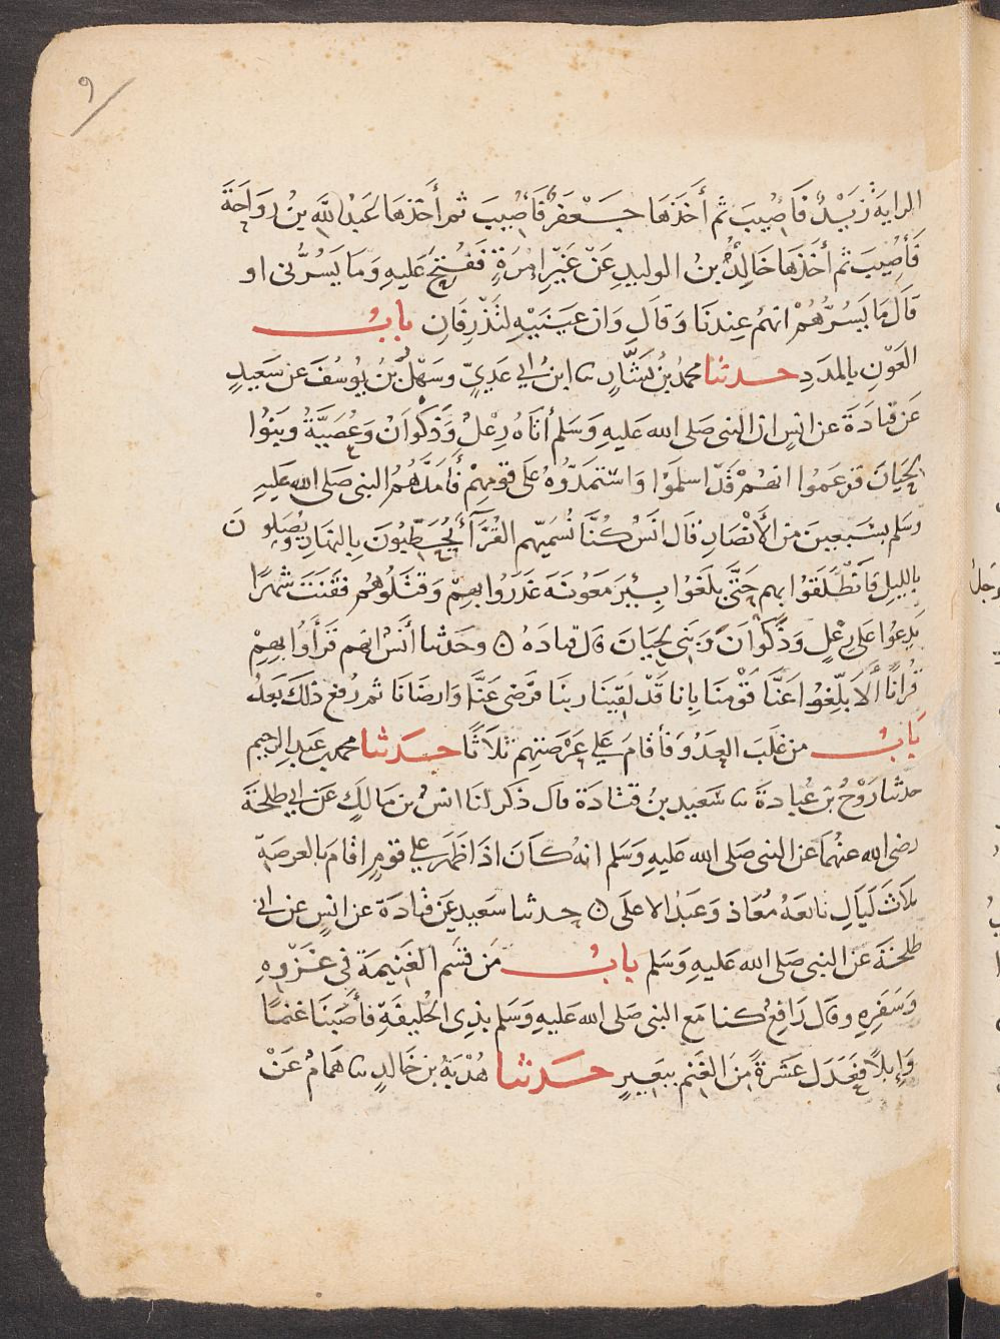 ٩
الرايةَ زَيْدٌ فَأُصِيبَ ثم أَخَذَهَا جَعْفَرٌ فَأُصِيبَ ثم أَخَذَهَا عَبْدُ اللَّهِ بنُ رَوَاحَةَ
فَأُصِيبَ ثم أَخَذَهَا خَالِدُ بنُ الوليدِ عَنْ غَيْرِ إمْرَةٍ فَفُتِحَ عَلَيهِ وَمَا يَسُرُّنى او
قالَ مَا يَسُرُّهُمْ انهُم عِندنَا وَقالَ وَان عَينَيْهِ لتَذْرِفَانِ بابُ
العَوْنِ بالمدَدِ حدثنا محمدُ بنُ بَشَّارٍ نا ابنُ ابي عَدِيٍّ وسَهْلُ بْنُ يُوسُفَ عن سَعيدٍ
عَن قتادَةَ عن انسٍ ان النبى صَلى الله عَليهِ وَسَلم أتَاهُ رِعْلٌ وَذَكْوَانُ وَعُصَيَّةُ وبَنُوا
لِحْيَانَ فزعَمُوا انهُمْ قَدْ اسلَمَوْا وَاسْتَمَدُّوهُ عَلى قومِهِمْ فَأمَدَّهُمُ النبى صَلى الله عَليهِ
وَسَلم بسَبعِينَ من الأَنْصَارِ قال انَسٌ كُنَّا نُسَمِيّهم القُرَّآءَ يَحْطِبُونَ بِالنهَارِ وَيُصَلونَ
بالليلِ فَانْطَلَقوُا بهم حَتَّى بَلَغوُا بِئْرَ مَعُونَةَ غَدَرُوا بِهِمْ وَقَتَلُوهُم فقَنَتَ شَهرًا
يَدعوُا عَلى رِعْلٍ وَذَكْوَانَ وَبَنِي لِحيَانَ قال قتادَهُ ه وحَدثنا أنَسٌ انهم قرَأوُا بِهِمْ
قُرانًا أَلَا بلِّغوُا عَنَّا قَوْمَنَا بِانا قَدْ لقِينَا ربنَا فرَضىَ عَنَّا وَارضَانَا ثم رُفعَ ذلكَ بَعدُ
بَابُ من غَلَبَ العدُوَ فأقامَ عَلى عَرْصَتِهِم ثلَاثًا حدثنا محمد بن عَبدِ الرحيم
حدثنا رَوْحُ بن عُبادةَ نا سَعيد بنُ قتادَة قال ذكر لنا انسُ بن مَالكٍ عَن ابي طلحَةَ
رضى الله عنهُمَا عن النبى صَلى الله عَليهِ وَسَلم انهُ كانَ اذَا ظهَرَ على قومٍ اقامَ بالعرصَةِ
ثلَاثَ لَيَالٍ تابعَهُ مُعَاذ وَعَبدُ الاعلَى ه حدثنا سَعيد عَن قتادَة عن انسٍ عن ابى
طلحَةَ عَن النبى صَلى الله عَليهِ وَسَلم بابُ مَن قسَم الغَنيمَة فى غزْوِهِ
وَسَفرِهِ وقال رَافِعٌ كنا مَع النبى صَلى الله عَليهِ وَسَلم بذِى الحُليفَةِ فأصَبنَا غنمًا
وَإبلًا فعَدَل عَشَرةً مِنَ الغَنم ببَعيرٍ حدثنا هُدْبَةُ بن خَالدٍ نا هَمامٌ عَنْ